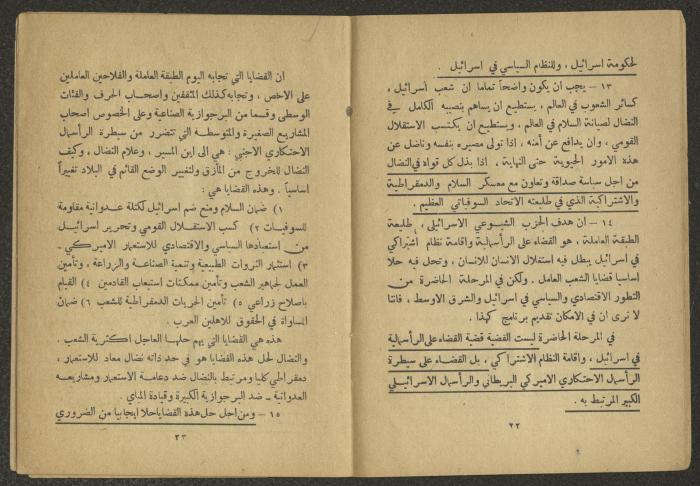 لحكومة اسرائيل ، وللنظام السياسي في اسرائيل .
١٣ – يجب ان يكون واضحاً تماما ان شعب اسرائيل ،
كسائر الشعوب في العالم ، يستطيع ان يساهم بنصيبه الكامل في
النضال لصيانة السلام في العالم ، ويستطيع ان يكتسب الاستقلال
القومي ، وان يدافع عن أمنه ، اذا تولى مصيره بنفسه وناضل عن
هذه الامور الحيوية حتى النهاية ، اذا بذل كل قواه في النضال
من اجل سياسة صداقة وتعاون مع معسكر السلام والدمقراطية
والاشتراكية الذي في طليعته الاتحاد السوفياتي العظيم .
١٤ – ان هدف الحزب الشيوعي الاسرائيلي ، طليعة
الطبقة العاملة ، هو القضاء على الرأسمالية واقامة نظام اشتراكي
في اسرائيل يبطل فيه استغلال الانسان للانسان ، وتحل فيه حلا
اساسيا قضايا الشعب العامل . ولكن في المرحلة الحاضرة من
التطور الاقتصادي والسياسي في اسرائيل والشرق الاوسط ، فاننا
لا نرى ان في الامكان تقديم برنامج كهذا .
في المرحلة الحاضرة ليست القضية قضية القضاء على الرأسمالية
في اسرائيل ، واقامة النظام الاشتراكي ، بل القضاء على سيطرة
الرأسمال الاحتكاري الاميركي البريطاني والرأسمال الاسرائيلي
الكبير المرتبط به .
٢٢
ان القضايا التي تجابه اليوم الطبقة العاملة والفلاحين العاملين
على الاخص ، وتجابه كذلك المثقفين واصحاب الحرف والفئات
الوسطى وقسما من البرجوازية الصناعية وعلى الخصوص اصحاب
المشاريع الصغيرة والمتوسطة التي تتضرر من سيطرة الرأسمال
الاحتكاري الاجنبي : هي الى اين المسير ، وعلام النضال ، وكيف
النضال للخروج من المآزق ولتغيير الوضع القائم في البلاد تغييراً
اساسياً . وهذه القضايا هي :
١) ضمان السلام ومنع ضم اسرائيل لكتلة عدوانية مقاومة
للسوفيات ٢) كسب الاستقلال القومي وتحرير اسرائيل
من استعبادها السياسي والاقتصادي للاستعمار الاميركي –
٣) استثمار الثروات الطبيعية وتنمية الصناعة والزراعة ، وتأمين
العمل لجماهير الشعب وتأمين ممكنات استيعاب القادمين ٤) القيام
باصلاح زراعي ٥) تأمين الحريات الدمقراطية للشعب ٦) ضمان
المساواة في الحقوق للاهلين العرب .
هذه هي القضايا التي يهم حلها العاجل اكثرية الشعب .
والنضال لحل هذه القضايا هو في حد ذاته نضال معاد للاستعمار ،
دمقراطي كليا ومرتبط بالنضال ضد دعامة الاستعمار ومشاريعه
العدوانية – ضد البرجوازية الكبيرة وقيادة المباي .
١٥ – ومن اجل حل هذه القضايا حلا ايجابيا من الضروري
٢٣